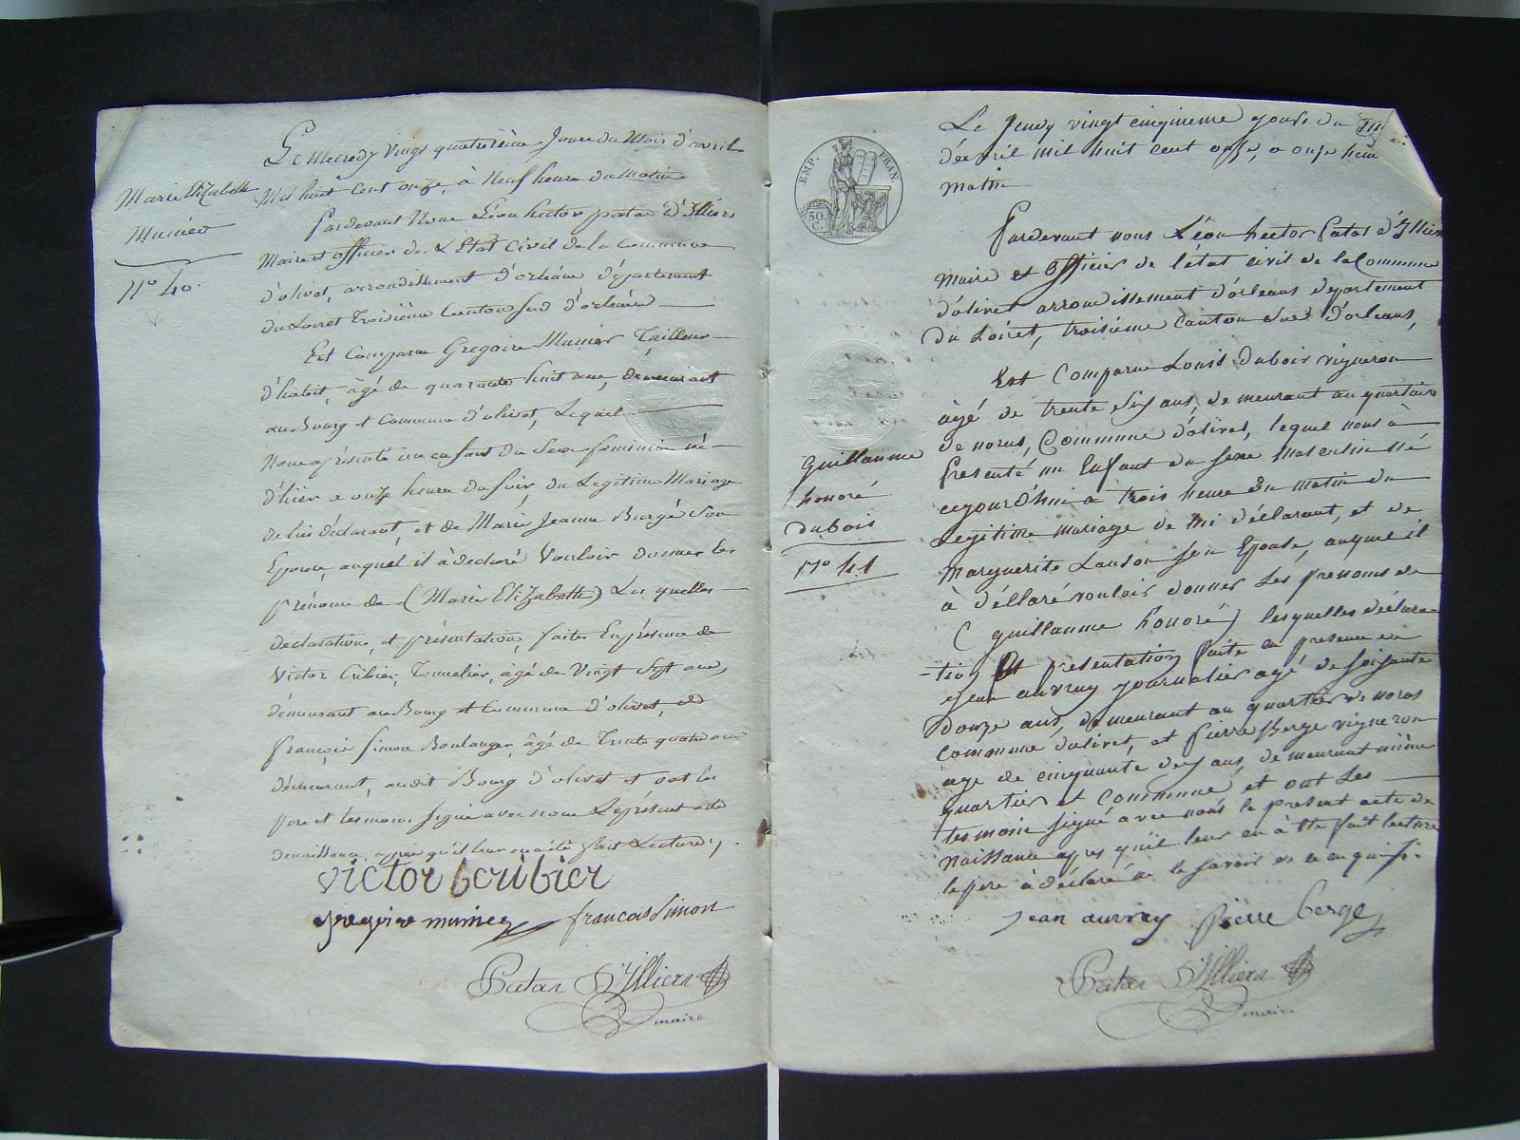 Marie Elizabette
Munier
N° 40.
Le Mecredy vingt quatrième Jour du Mois d'avril
Mil huit Cent onze, à Neuf heure du Matin
Pardevant Nous Léon hector patas d'Illiers
Maire et officier de L'Etat Civil de la Commune
d'olivet, arrondissement d'orléans département
du Loiret Troisième Canton sud d'orléans
Est Comparu Gregoire Munier Tailleur
d'habit, âgé de quarante huit ans, demeurant
au Bourg et Commune d'olivet, Lequel
Nous a présenté un enfant du Sexe féminin né
d'hier a onze heure du soir, du Légitime Mariage
de lui déclarant, et de Marie Jeanne Burgé son
Epouse, auquel il à déclaré Vouloir donner les
prénoms de (Marie Elizabette) Les quelles
declaration, et présentation, faites En présence de
Victor Cribier, Tonnelier, âgé de Vingt Sept ans,
demeurant au Bourg et Commune d'olivet, et
françois Simon Boulanger, âgé de Trente quatre ans
demeurant, audit Bourg d'olivet et ont les
pere et temoins signé avec nous Le présent acte
de naissance, après qu'il leur en a été fait Lecture ;.
victor Cribier
gregoire munier francois Simon
Patas D'Illiers
maire
EMP. FRAN.
50 C.
guillaume
honoré
dubois
N° 41
Le Jeudy vingt cinquieme jour du
d'avril mil huit cent onze, a onze heure
matin
Pardevant nous Léon hector Patas d'Illiers
Maire et Officier de l'état civil de la Commune
d'olivet arrondissement d'orleans departement
du Loiret, troisieme canton sud d'orleans,
Est Comparu Louis dubois vigneron
âgé de trente six ans, demeurant au quartier
de noras, Commune d'olivet, lequel nous à
Presenté un Enfant du sexe masculin né
cejourd'hui à trois heure du matin du
Legitime mariage de lui déclarant, et de
Marguerite Lanson son Epouse, auquel il
à déllaré vouloir donner les prenoms de
( guillaume honoré ) lesquelles déclara
-tion Et presentation faite en presence de
jean auvray journalier agé de soixante
douze ans, demeurant au quartier de noras
commune d'olivet, et Pierre Berge vigneron
age de cinquante six ans, demeurant même
quartier et commune et ont les
temoin signé avec nous le present acte de
Naissance apres quil leur en à été fait lecture
le pere à déclaré ne le savoir de ce enquis ;.
jean auvray pierre berge
Patas D'Illiers
maire